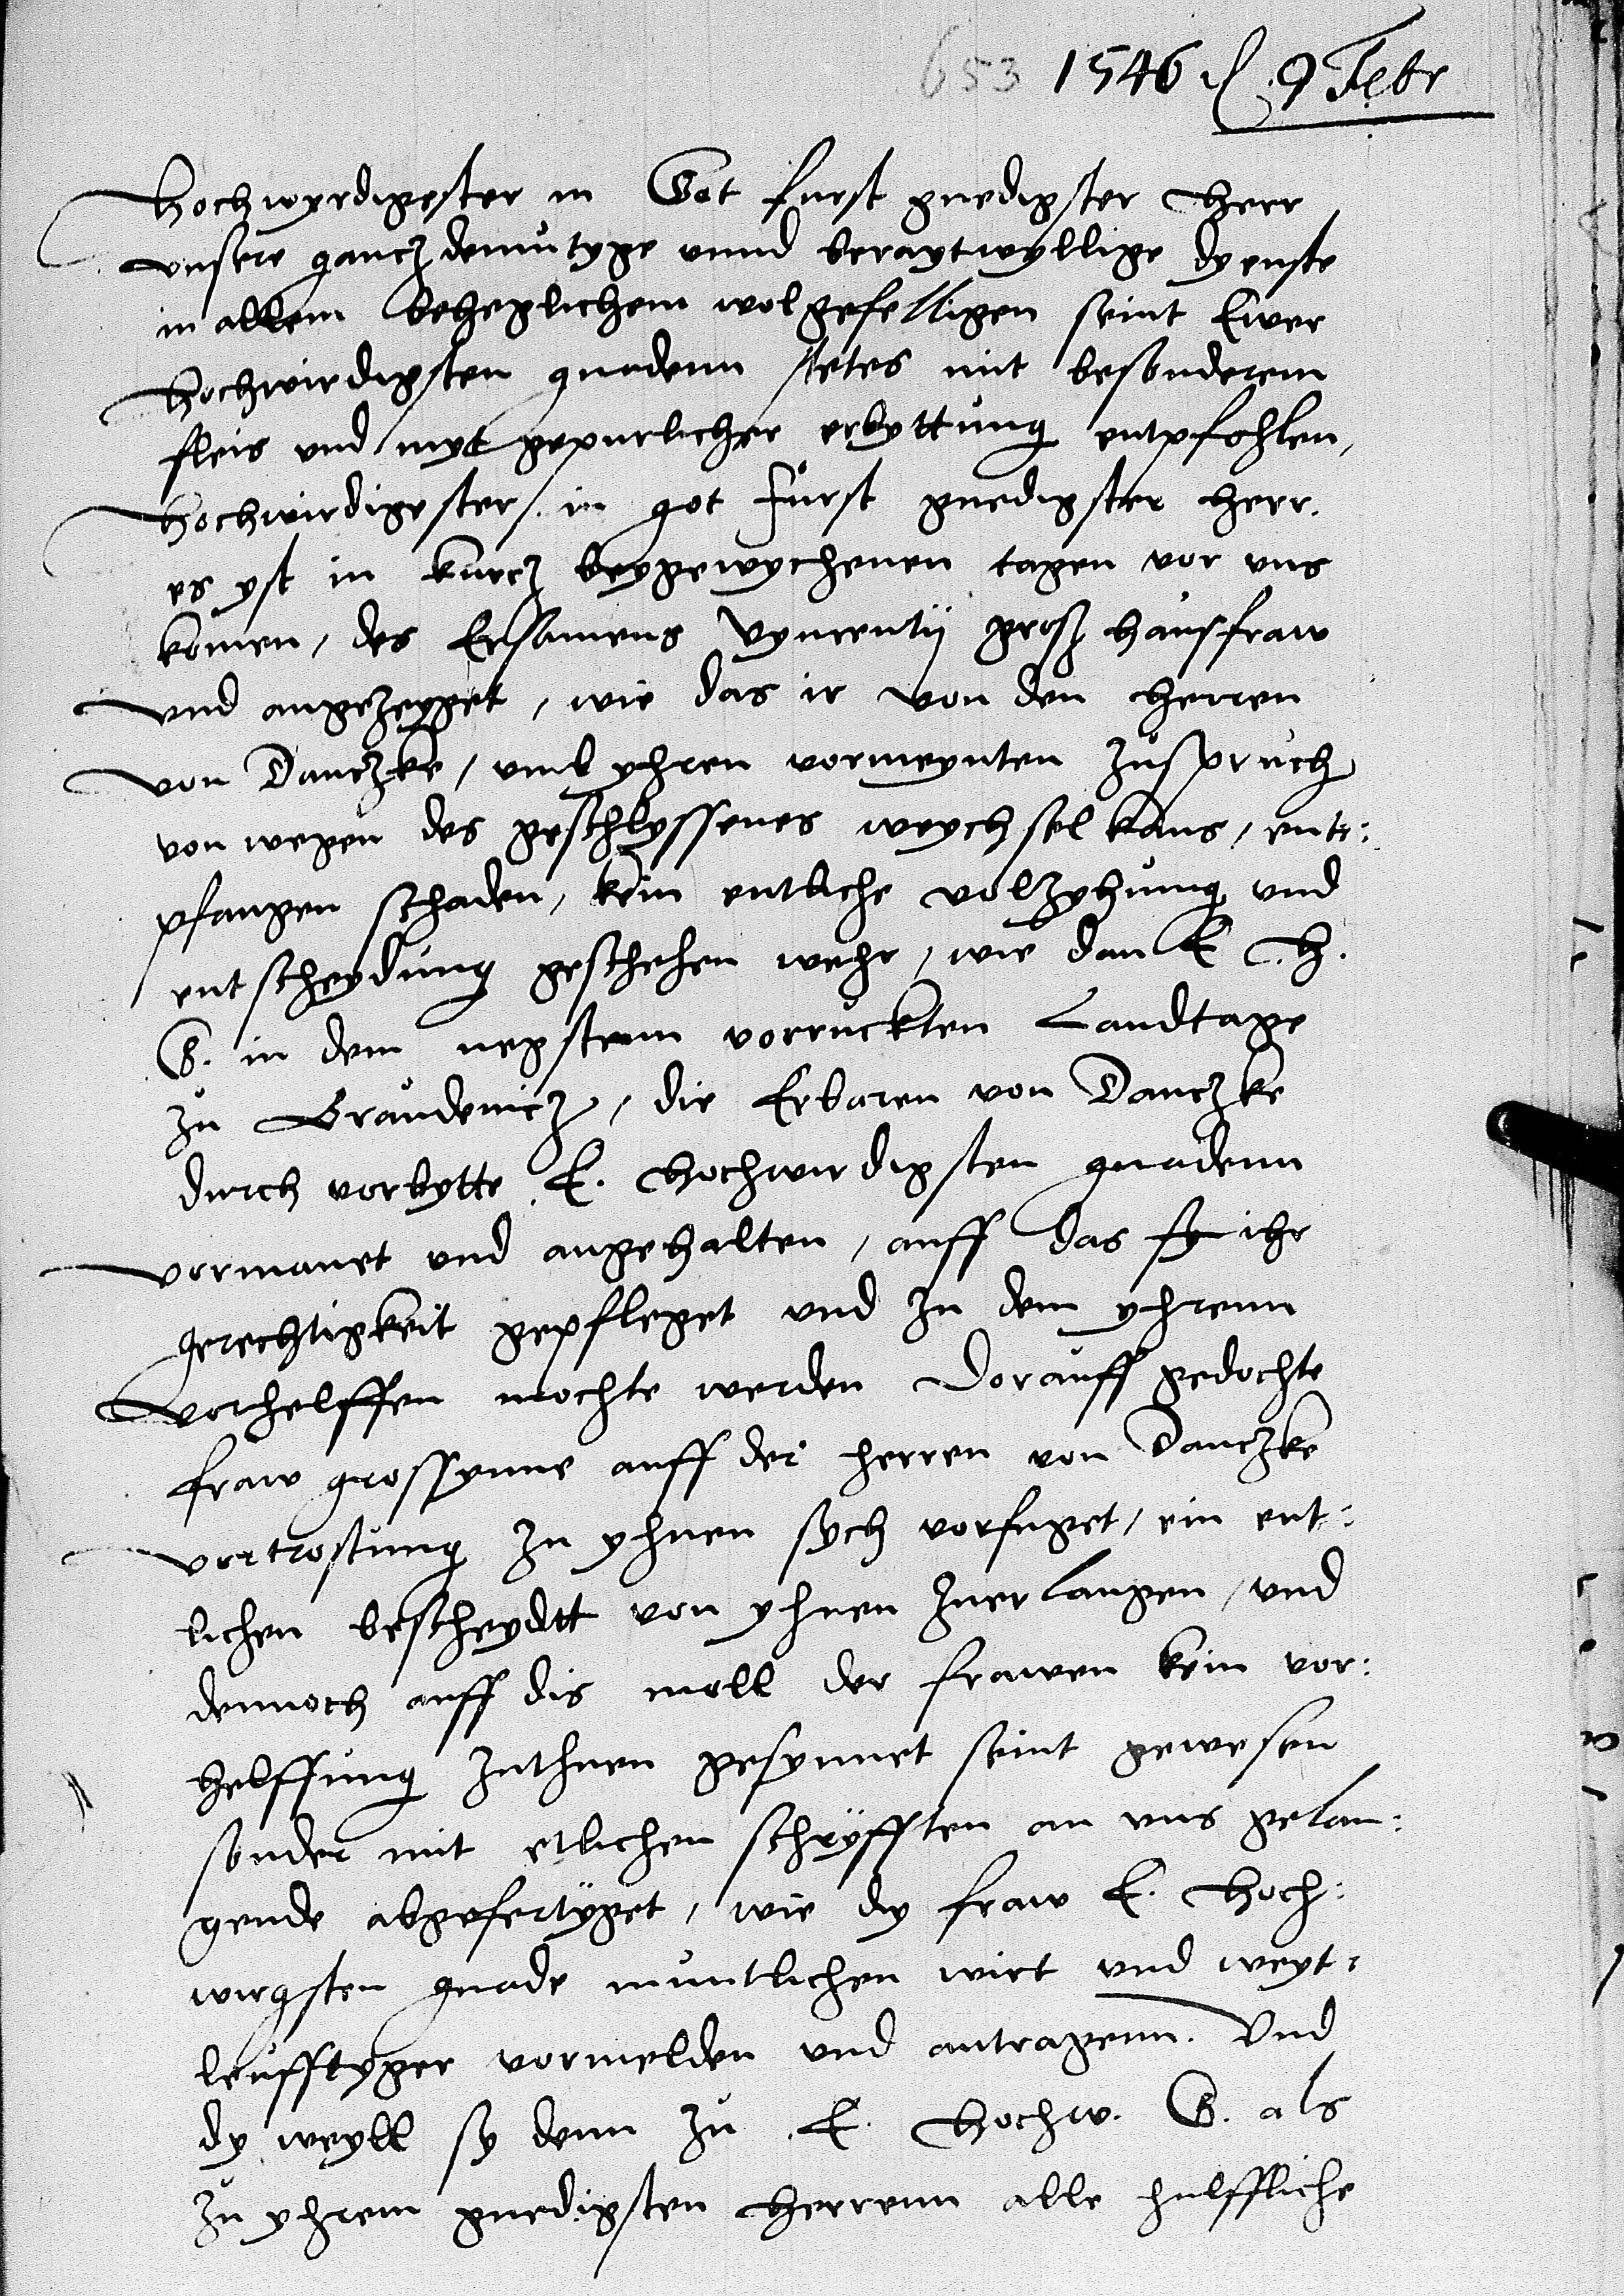 653 1546 d. 9 Febr
Hochwyrdigester in Got furst gnedigster Herr
vnsere gancz demutyge vnnd beraytwyllige dyenste
in allem beheglichem wolgefelligen seint Ewer
Hochwirdigsten gnadenn stetes mit besonderem
fleis vnd myt gepurlicher erbyttung entpfohlen,
Hochwirdigester in got Furst gnedigster Herr.
es yst in kurcz beygewychenen tagen vor vns
komen, des Ersamens Vyncentij grosz hausfraw
vnd angezeyget, wie das ir von den Herren
von Danczke, vmb yhren vormeynten zuspruch
von wegen des geschlyssenes weychsel kans, ent:
pfangen schaden, kein entliche volzyhung vnd
entscheydung geschehen wehr, wie dan E. H.
G. in dem negstem vorruckten Landtage
zu Graudenicz, die Erbaren von Danczke
durch vorbytte E. Hochwirdigsten gnadenn
vermanet vnd angehalten, auff das sy ihr
gerechtigkeit gepfleget vnd zu dem yhrenn
vorhelffen mochte werden Dorauff gedochte
fraw grossynne auff der herren von Danczke
vertrostung zu yhnen sych vorfuget, ein ent:
lichen bescheydtt von yhnen zuerlangen, vnd
dennoch auff dis moll der frawen kein vor:
helffung zuthuen gesynnet seint gewesen
sonder mit etlichen schryfften an vns gelan:
gende abgefertyget, wie dy fraw E. Hoch:
wirgsten gnade muntlichen wirt vnd weyt:
leufftyger vormelden vnd antragenn. Vnd
dy weyll sy denn zu E. Hochw. G. als
zu yhrem gnedigsten Herrenn alle hulffliche